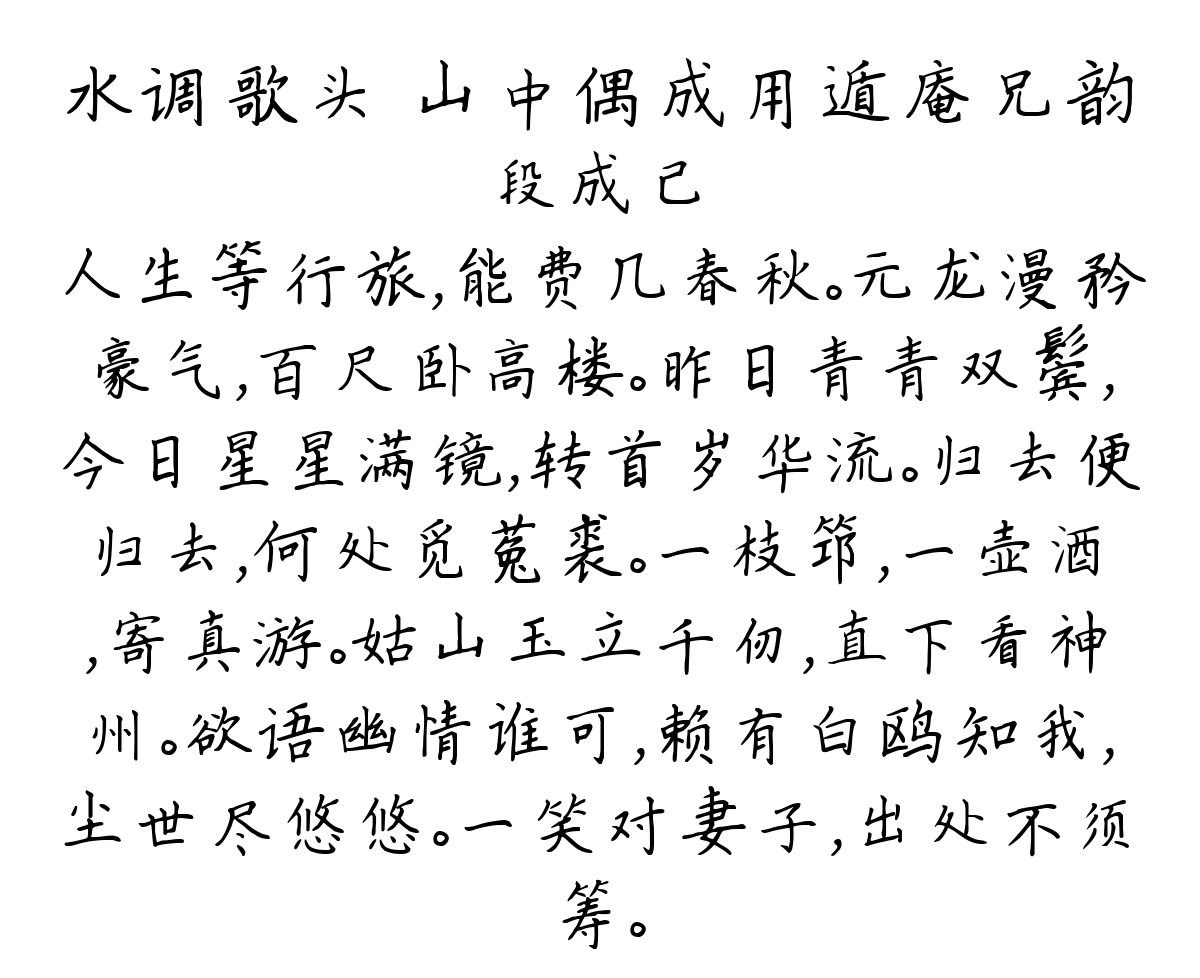 水调歌头 山中偶成用遁庵兄韵
段成己
人生等行旅,能费几春秋。元龙漫矜
豪气,百尺卧高楼。昨日青青双鬓,
今日星星满镜,转首岁华流。归去便
归去,何处觅菟裘。一枝筇,一壶酒
,寄真游。姑山玉立千仞,直下看神
州。欲语幽情谁可,赖有白鸥知我,
尘世尽悠悠。一笑对妻子,出处不须
筹。